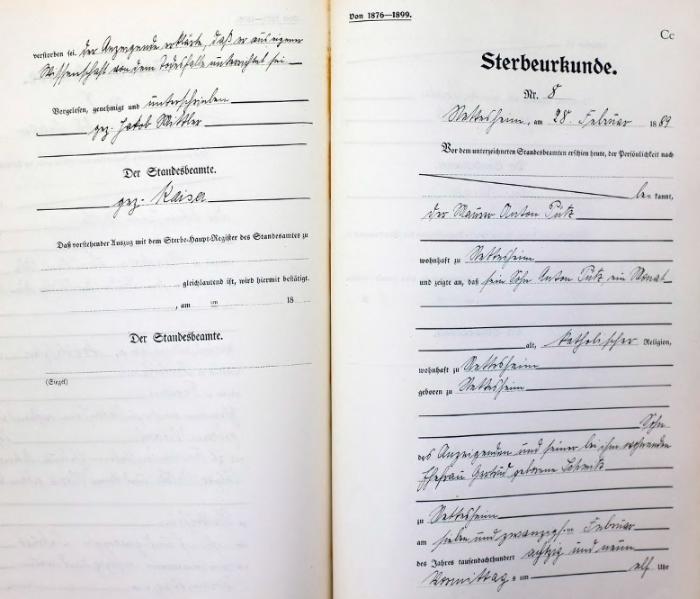 verstorben sei. Der Anzeigende erklärte, daß er aus eigener
Wissenschaft von dem Todesfalle unterrichtet sei
Vorgelesen, genehmigt und unterschrieben
gez. Jakob Wittler
Der Standesbeamte.
gez. Kaiser
Daß vorstehender Auszug mit dem Sterbe-Haupt-Register des Standesamtes zu
gleichlautend ist, wird hiermit bestätigt.
, am ten 18
Der Standesbeamte.
(Siegel)
Von 1876—1899.
Cc
Sterbeurkunde.
Nr. 8
Nettesheim, am 28. Februar 1889
Vor dem unterzeichneten Standesbeamten erschien heute, der Persönlichkeit nach
bekannt,
der Maurer Anton Pütz
wohnhaft zu Nettesheim
und zeigte an, daß sein Sohn Anton Pütz ein Monat
alt, katholischer Religion,
wohnhaft zu Nettesheim
geboren zu Nettesheim
Sohn
des Anzeigenden und seiner bei ihm wohnenden
Ehefrau Gertrud geborene Schmitz
zu Nettesheim
am sieben und zwanzigsten Februar
des Jahres tausendachthundert achtzig und neun
Vormittags um elf Uhr